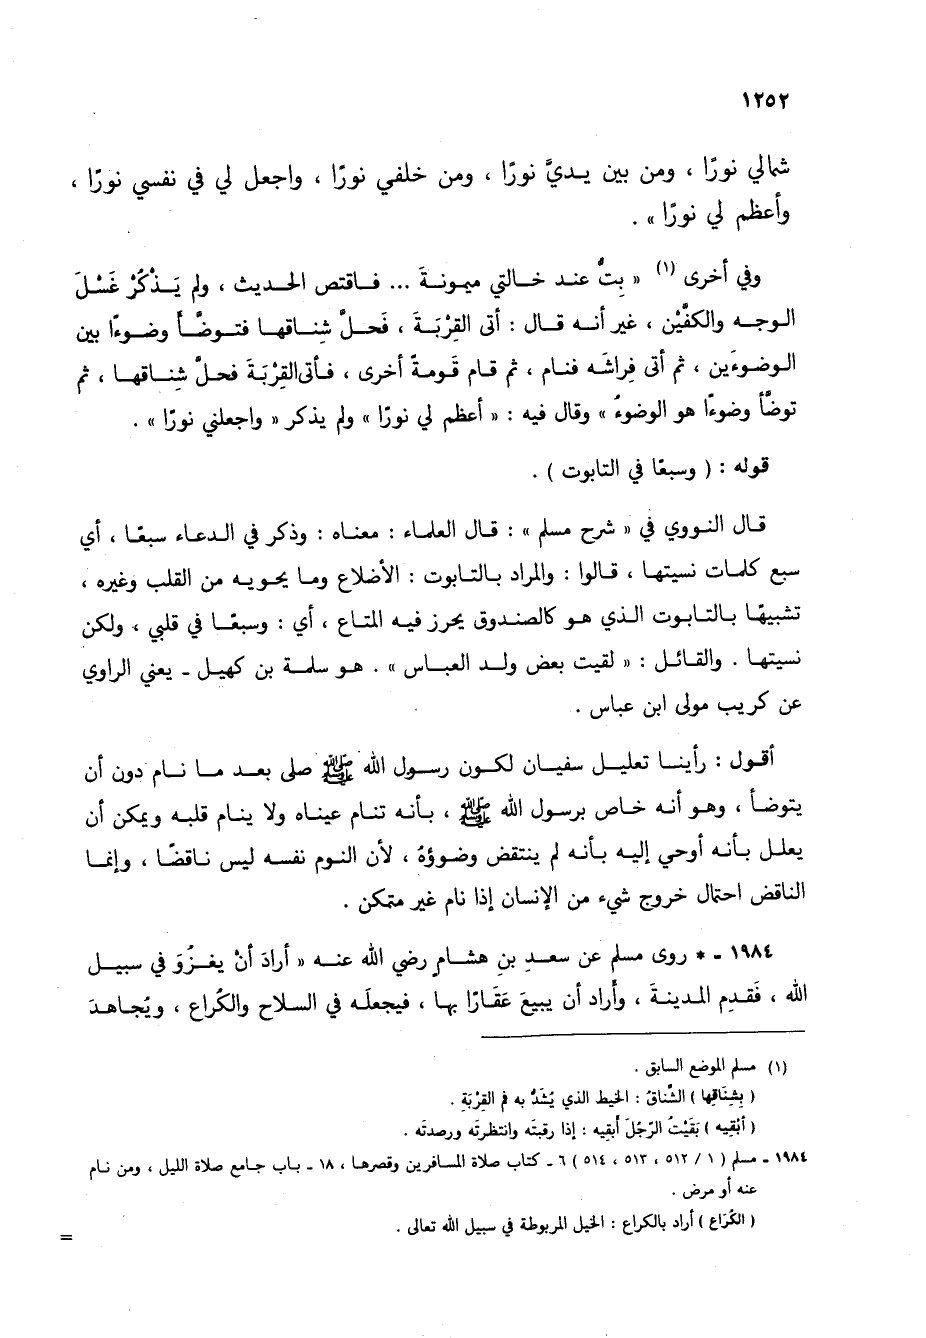 ١٢٥٢
شمالي نورًا ، ومن بين يديَّ نورًا ، ومن خلفي نورًا ، واجعل لي في نفسي نورًا ،
وأعظم لي نورًا » .
وفي أخرى (١) « بِتُّ عند خالتي ميمونةَ ... فاقتص الحديث ، ولم يَذْكُرْ غَسْلَ
الوجه والكفَّيْن ، غير أنه قال : أتى القِرْبَةَ ، فَحلَّ شِناقها فتوضَّأ وضوءًا بين
الوضوءَين ، ثم أتى فِراشَه فنام ، ثم قام قَومةً أخرى ، فأتى القِرْبَةَ فحلَّ شِناقها ، ثم
توضَّأ وضوءًا هو الوضوءُ » وقال فيه : « أعظم لي نورًا » ولم يذكر « واجعلني نورًا » .
قوله : ( وسبعًا في التابوت ) .
قال النووي في « شرح مسلم » : قال العلماء : معناه : وذكر في الدعاء سبعًا ، أي
سبع كلمات نسيتها ، قالوا : والمراد بالتابوت : الأضلاع وما يحويه من القلب وغيره ،
تشبيهًا بالتابوت الذي هو كالصندوق يحرز فيه المتاع ، أي : وسبعًا في قلبي ، ولكن
نسيتها . والقائل : « لقيت بعض ولد العباس » . هو سلمة بن كهيل ـ يعني الراوي
عن كريب مولى ابن عباس .
أقول : رأينا تعليل سفيان لكون رسول الله ﷺ صلى بعد ما نام دون أن
يتوضأ ، وهو أنه خاص برسول الله ﷺ ، بأنه تنام عيناه ولا ينام قلبه ويمكن أن
يعلل بأنه أوحي إليه بأنه لم ينتقض وضوؤهُ ، لأن النوم نفسه ليس ناقضًا ، وإنما
الناقض احتمال خروج شيء من الإنسان إذا نام غير متمكن .
١٩٨٤ ـ * روى مسلم عن سعدِ بنِ هشام رضي الله عنه « أرادَ أنْ يغزُوَ في سبيل
الله ، فَقدِم المدينةَ ، وأراد أن يبيعَ عَقَارًا بها ، فيجعلَه في السلاح والكُراعِ ، ويُجاهدَ
(١) مسلم الموضع السابق .
( بِشِنَاقِها ) الشِّناقُ : الخيط الذي يُشَدُّ به فم القِرْبَةِ .
( أبْقِيه ) بَقَيْتُ الرَّجُلَ أَبقيه : إذا رقبتَه وانتظرتَه ورصدتَه .
١٩٨٤ ـ مسلم ( ١ / ٥١٢ ، ٥١٣ ، ٥١٤ ) ٦ ـ كتاب صلاة المسافرين وقصرها ، ١٨ ـ باب جامع صلاة الليل ، ومن نام
عنه أو مرض .
( الكُرَاع ) أراد بالكراع : الخيل المربوطة في سبيل الله تعالى .
=